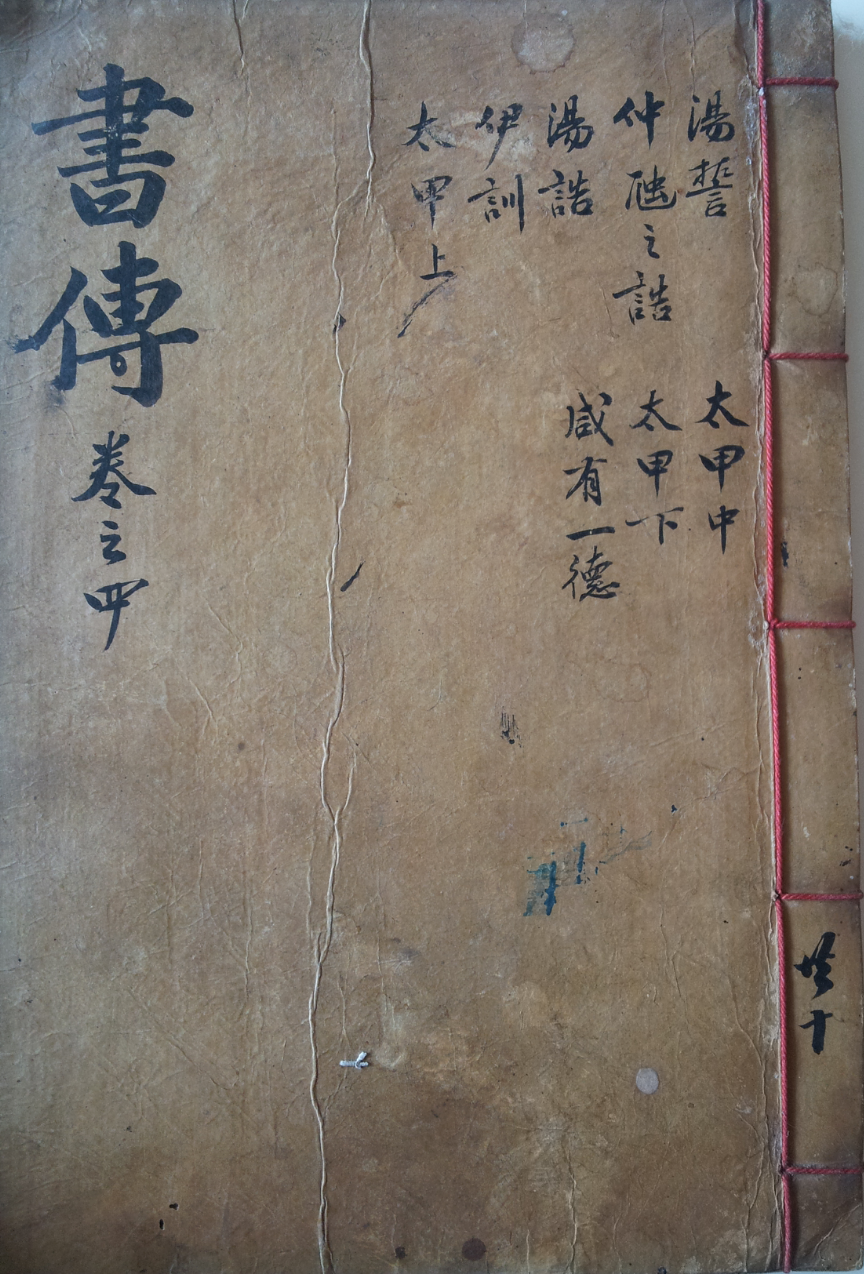 湯誓
仲虺之誥
湯誥
伊訓
太甲上
太甲中
太甲下
咸有一德
書傳 卷之四
共十